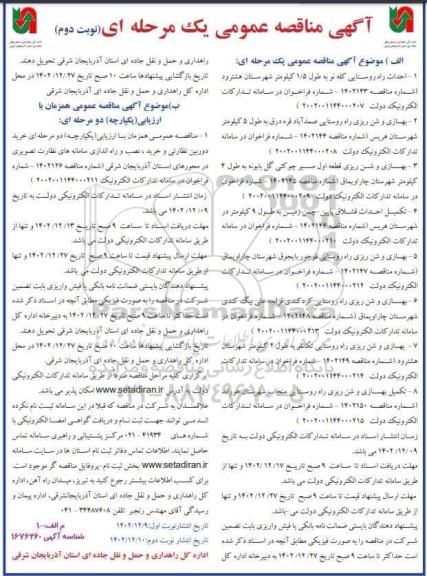 آگهی مناقصه عمومی یک مرحله ای (نوبت دوم)
الف ) موضوع آگهی مناقصه عمومی یک مرحله ای:
۱ - احداث راه روستایی کله نو به طول ۱/۵ کیلومتر شهرستان هشترود
(شماره مناقصه ۱۴۰۲۱۴۳ - شماره فراخوان در سامانه تدارکات
الکترونیک دولت
۲ - بهسازی و شن ریزی راه روستایی صمدآباد قره درق به طول ۵ کیلومتر
شهرستان هریس (شماره مناقصه ۱۴۰۲۱۴۴ - شماره فراخوان در سامانه
تدارکات الکترونیک دولت
۳ - بهسازی و شن ریزی قطعه اول مسیر چوکلی گل بابونه به طول ۴
کیلومتر شهرستان چاراویماق (شماره مناقصه ۱۴۰۲۱۴۵ شماره فراخوان
در سامانه تدارکات الکترونیک دولت
۴ - تکمیل احداث قشلاق پایین -چمن زمیین به طول ۹ کیلومتر در
شهرستان هریس (شماره مناقصه ۱۴۰۲۱۴۶ شماره فراخوان در سامانه
تدارکات الکترونیک دولت
۵ - بهسازی و شن ریزی راه روستایی قورجور بایجوق شهرستان چاراویماق
(شماره مناقصه ۱۴۰۲۱۴۷ شماره فراخوان در سامانه تدارکات
الکترونیک دولت
۶ - بهسازی و شن ریزی راه روستایی کرد کندی قرابه ملی بیگ کندی
شهرستان چاراویماق (شماره مناقصه ۱۴۰۲۱۴۸ - شماره فراخوان در
سامانه تدارکات الکترونیک دولت
۷ - بهسازی و شن ریزی راه روستایی تکلتو به طول ۲ کیلومتر شهرستان
هشترود (شماره مناقصه ۱۴۰۲۱۴۹ شماره فراخوان در سامانه تدارکات
الکترونیک دولت
۸ - تکمیل بهسازی و شن ریزی راه روستایی منجاب شهرستان هوراند
(شماره مناقصه ۱۴۰۲۱۵۰ - شماره فراخوان در سامانه تدارکات
الکترونیک دولت
زمان انتشار اسناد در سامانه تدارکات الکترونیکی دولت به تاریخ
۱۴۰۲/۱۲/۰۹ می باشد.
مهلت دریافت اسناد تا ساعت ۹ صبح تاریخ ۱۴۰۲/۱۲/۱۷ و تنها از
طریق سامانه تدارکات الکترونیکی دولت می باشد.
مهلت ارسال پیشنهاد قیمت تا ساعت ۹ صبح تاریخ ۱۴۰۲/۱۲/۲۷ و تنها
از طریق سامانه تدارکات الکترونیکی دولت می باشد.
پیشنهاد دهندگان بایستی ضمانت نامه بانکی یا فیش واریزی بابت تضمین
شرکت در مناقصه را به صورت فیزیکی مطابق آنچه در اسناد ذکر شده
است حداکثر تا ساعت ۹ صبح تاریخ ۱۴۰۲/۱۲/۲۷ به دبیرخانه اداره کل
راهداری و حمل و نقل جاده ای استان آذربایجان شرقی تحویل دهند.
تاریخ بازگشایی پیشنهادها ساعت ۱۰ صبح تاریخ ۱۴۰۲/۱۲/۲۷ در محل
اداره کل راهداری و حمل و نقل جاده ای استان آذربایجان شرقی
ب)موضوع آگهی مناقصه عمومی همزمان با
ارزیابی(یکپارچه) دو مرحله ای:
۱ - مناقصه عمومی همزمان با ارزیابی(یکپارچه) دو مرحله ای خرید
دوربین نظارتی و خرید ، نصب و راه اندازی سامانه های نظارت تصویری
در محورهای استان آذربایجان شرقی (شماره مناقصه ۱۴۰۲۱۲۶ - شماره
فراخوان در سامانه تدارکات الکترونیک
زمان انتشار اسناد در سامانه تدارکات الکترونیکی دولت به تاریخ
۱۴۰۲/۱۲/۰۹ می باشد.
مهلت دریافت اسناد تا ساعت ۹ صبح تاریخ ۱۴۰۲/۱۲/۱۳ و تنها از
طریق سامانه تدارکات الکترونیکی دولت می باشد.
مهلت ارسال پیشنهاد قیمت تا ساعت ۹ صبح تاریخ ۱۴۰۲/۱۲/۲۷ و تنها
از طریق سامانه تدارکات الکترونیکی دولت می باشد.
پیشنهاد دهندگان بایستی ضمانت نامه بانکی یا فیش واریزی بابت تضمین
شرکت در مناقصه را به صورت فیزیکی مطابق آنچه در اسناد ذکر شده
است حداکثر تا ساعت ۹ صبح تاریخ ۱۴۰۲/۱۲/۲۷ به دبیرخانه اداره کل
راهداری و حمل و نقل جاده ای استان آذربایجان شرقی تحویل دهند.
تاریخ بازگشایی پیشنهادها ساعت ۱۰ صبح تاریخ ۱۴۰۲/۱۲/۲۷ در محل
اداره کل راهداری و حمل و نقل جاده ای استان آذربایجان شرقی.
برگزاری کلیه مراحل مناقصه صرفا از طریق سامانه تدارکات الکترونیکی
دولت به آدرس www.setadiran.ir امکان پذیر می باشد.
علاقمندان به شرکت در مناقصه که قبلا در این سامانه ثبت نام نکرده
اند می توانند جهت ثبت نام و دریافت گواهی امضا الکترونیکی با
شماره های ۴۱۹۳۴ - ۰۲۱ مرکز پشتیبانی و راهبری سامانه تماس
حاصل نمایند. اطلاعات تماس دفاتر ثبت نام استان ها در سایت سامانه
www.setadiran.ir بخش ثبت نام -پروفایل مناقصه گر موجود است.
برای کسب اطلاعات بیشتر رجوع کنید به تبریز، میدان راه آهن، اداره
کل راهداری و حمل و نقل جاده ای استان آذربایجانشرقی، اداره پیمان و
رسیدگی آقای مهندس رنجبر تلفن ۳۴۴۸۷۶۰۸ - ۰۴۱
تاریخ انتشار نوبت اول:۱۴۰۲/۱۲/۹
تاریخ انتشار نوبت دوم:۱۴۰۲/۱۲/۱۰
م الف:۱۰۰
شناسه آگهی ۱۶۷۶۲۶۰
اداره کل راهداری و حمل و نقل جاده ای استان آذربایجان شرقی